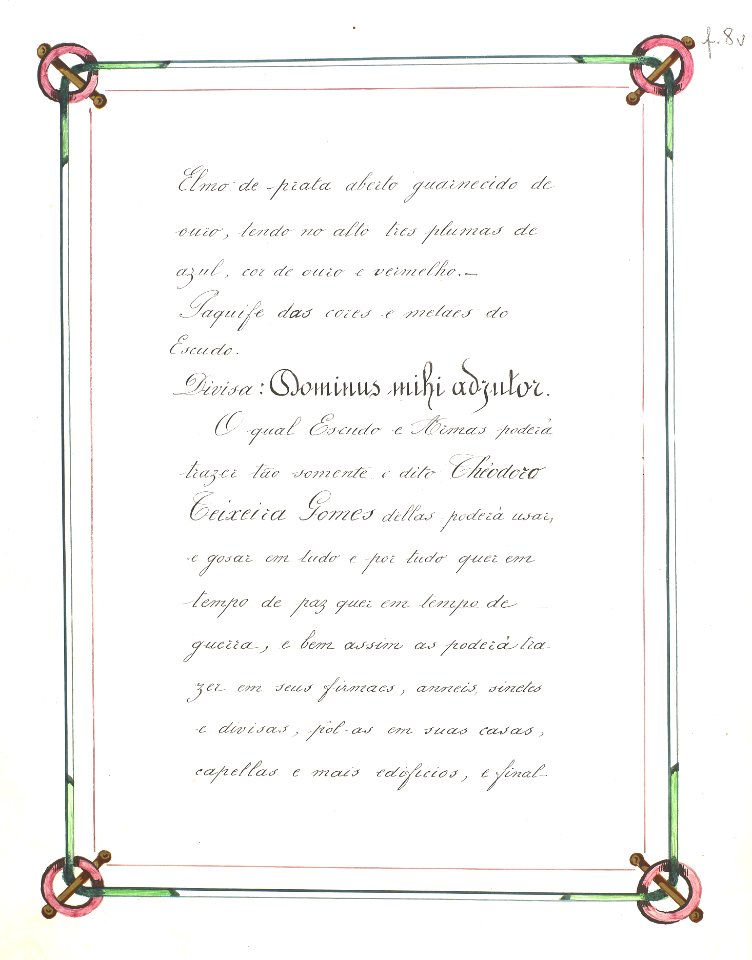 f. 8v
Elmo de prata aberto guarnecido de
ouro, tendo no alto tres plumas de
azul, cor de ouro e vermelho.—
Paquife das cores e metaes do
Escudo.
Divisa: Dominus mihi adjutor.
O qual Escudo e Armas poderá
trazer tão somente o dito Théodoro
Teixeira Gomes dellas poderá usar,
e gosar em tudo e por tudo quer em
tempo de paz quer em tempo de
guerra, e bem assim as poderá tra-
zer em seus firmaes, anneis, sinetes
e divisas, pôl-as em suas casas,
capellas e mais edificios, e final-